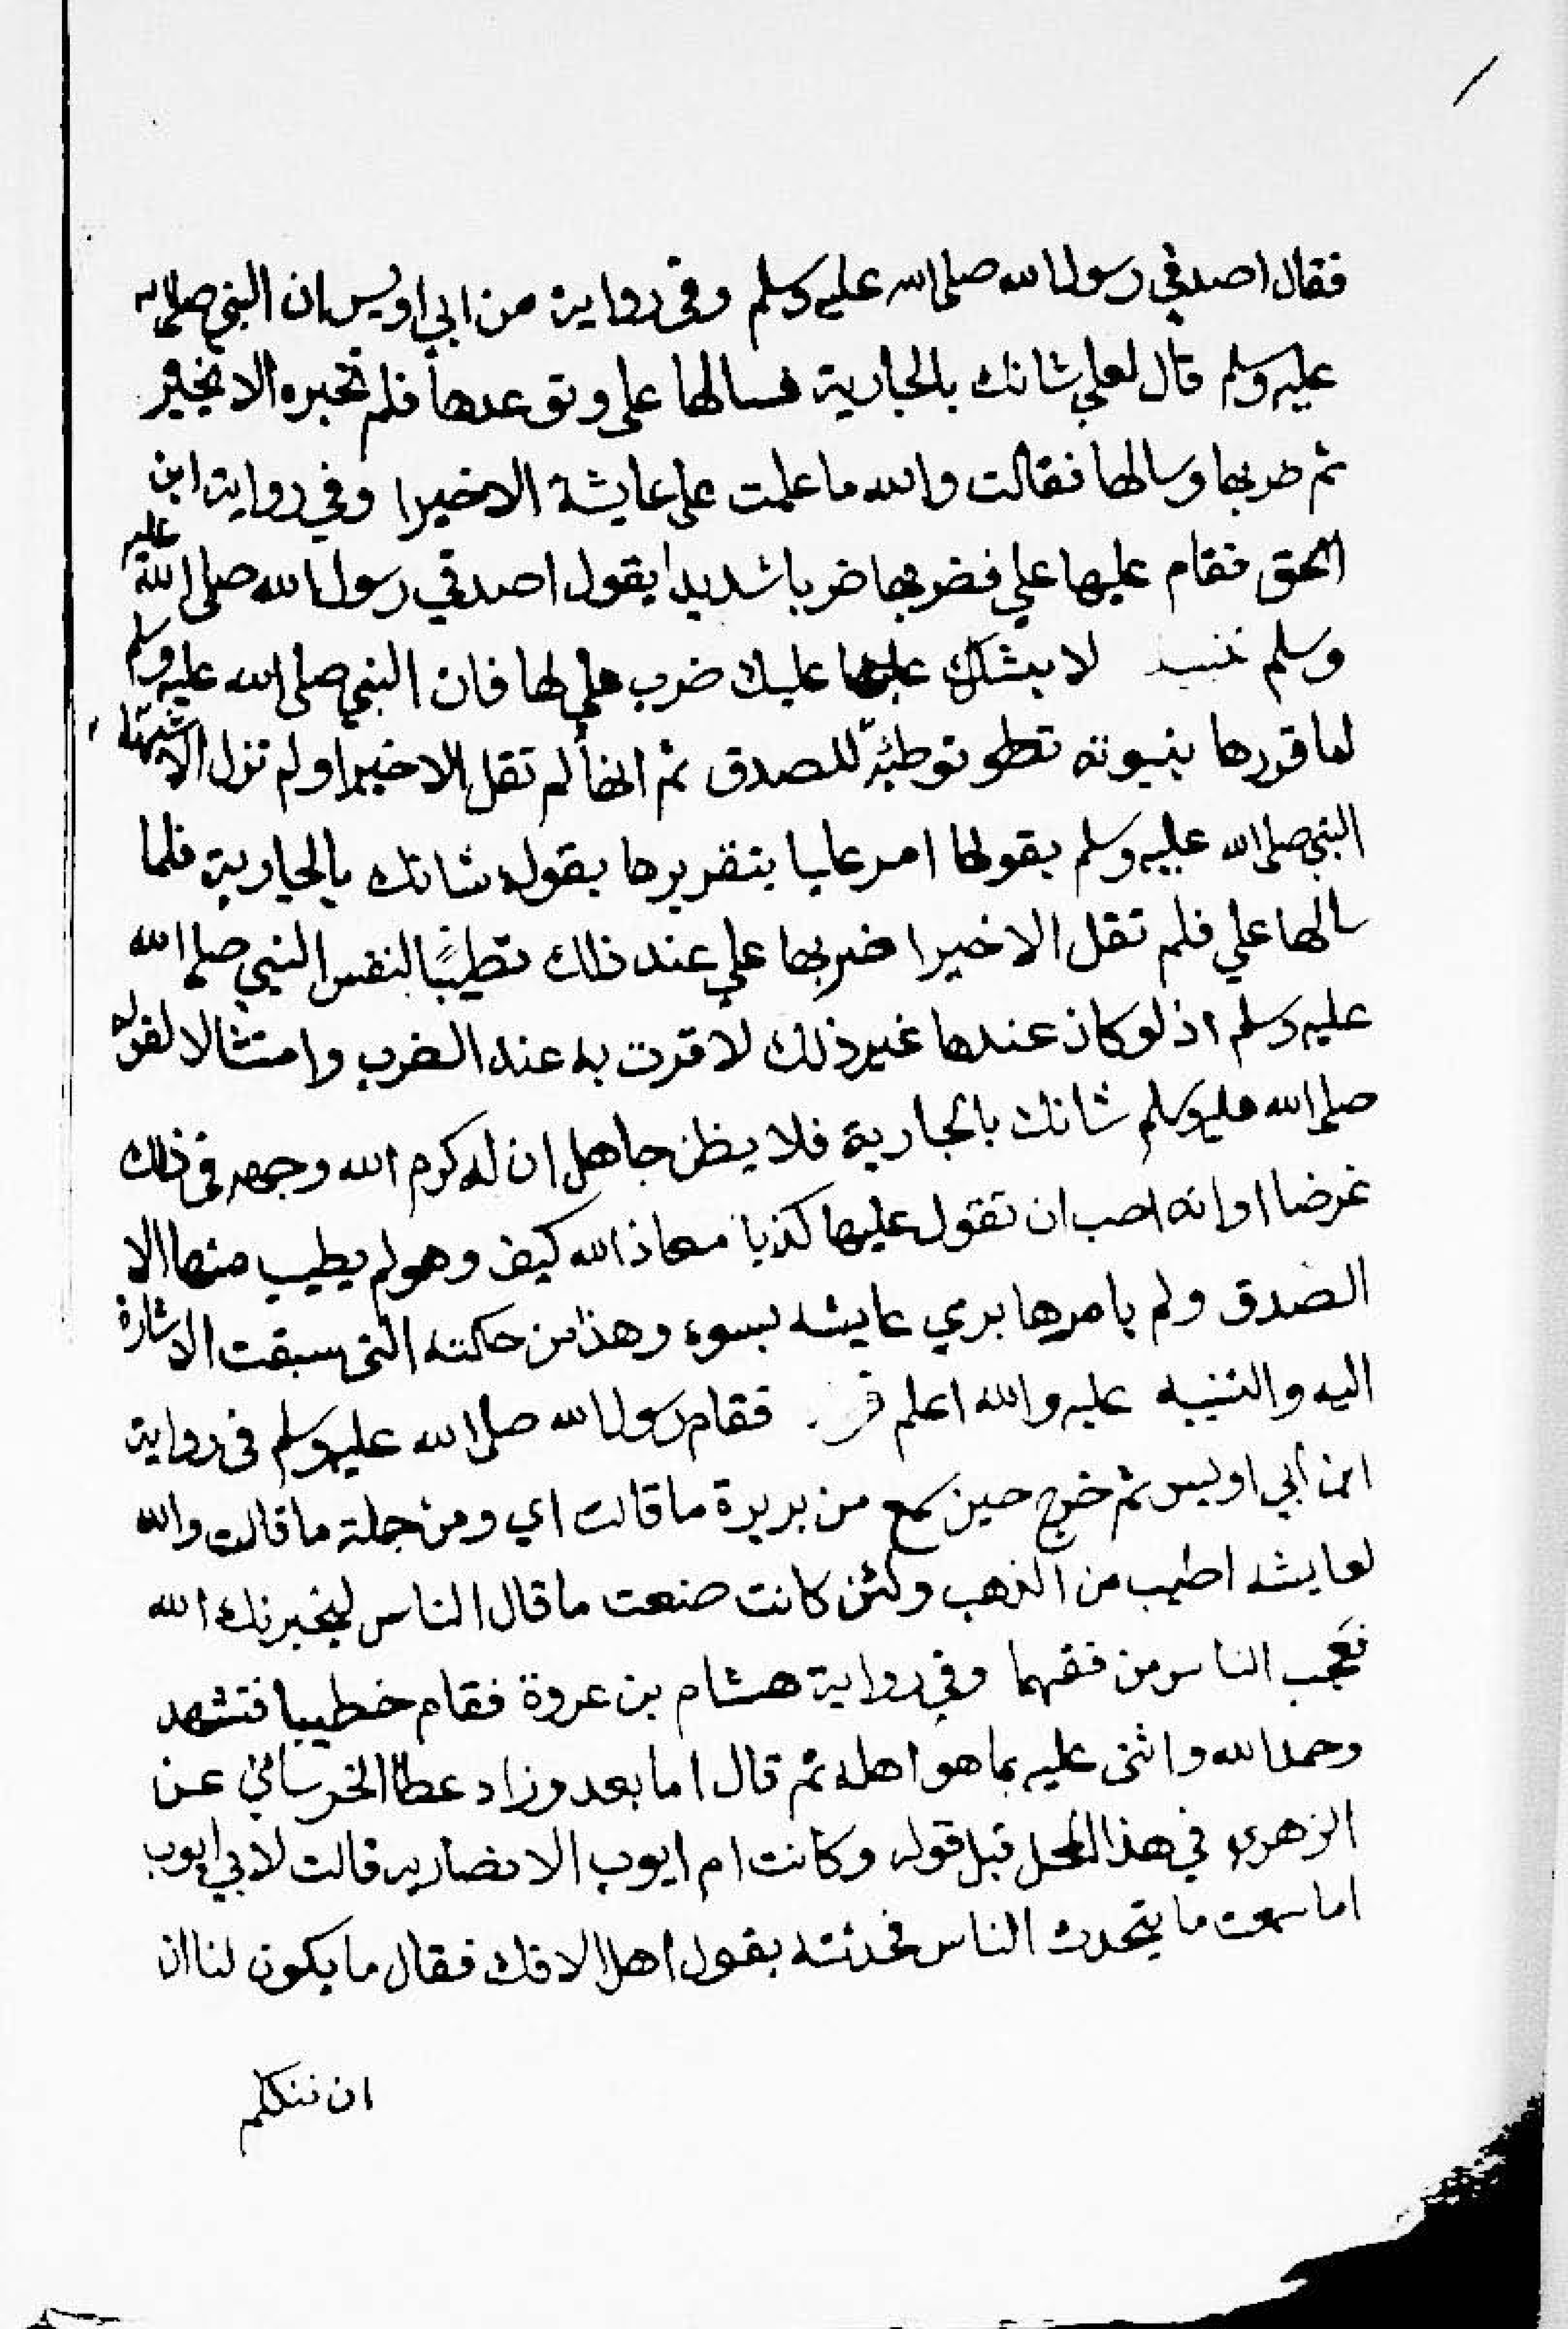 فقال اصدقي رسول الله صلى الله عليه وسلم وفي رواية من ابي اويس ان النبي صلى الله
عليه وسلم قال لعلي شانك بالجارية فسالها على وتوعدها فلم تخبره الا بخير
ثم ضربها وسالها فقالت والله ما علمت على عايشة الا خيرا وفي رواية ابن
اسحق فقام عليها علي فضربها ضربا شديدا يقول اصدقي رسول الله صلى الله عليه
وسلم لا يشكل عليك ضرب علي لها فان النبي صلى الله عليه وسلم
لما قررها بنبوته توطئة للصدق ثم انها لم تقل الا خيرا ولم تزل
النبي صلى الله عليه وسلم بقولها امر عليا بتقريرها بقوله شانك بالجارية فلما
سالها علي فلم تقل الا خيرا ضربها علي عند ذلك تطييبًا لنفس النبي صلى الله
عليه وسلم اذ لو كان عندها غير ذلك لاقرت به عند الضرب وامتثالا لقوله
صلى الله عليه وسلم شانك بالجارية فلا يظن جاهل ان له كرم الله وجهه في ذلك
غرضا او انه احب ان تقول عليها كذبا معاذ الله كيف وهو لم يطيب منها الا
الصدق ولم يامرها برمي عايشه بسوء وهذا من حكمته التي سبقت الاشارة
اليه والتنبيه عليه والله اعلم فقام رسول الله صلى الله عليه وسلم في رواية
ابن أبي اويس ثم خرج حين سمع من بريرة ما قالت اي ومن جملة ما قالت والله
لعايشه اطيب من الذهب ولئن كانت صنعت ما قال الناس ليخبرنك الله
فعجب الناس من فقهها وفي رواية هشام بن عروة فقام خطيبا فتشهد
وحمد الله واثنى عليه بما هو اهله ثم قال اما بعد وزاد عطا الخرساني عن
الزهري في هذا المحل قبل قوله وكانت ام ايوب الانصاريه قالت لابي ايوب
اما سمعت ما يتحدث الناس فحدثته بقول اهل الافك فقال ما يكون لنا ان
ان نتكلم